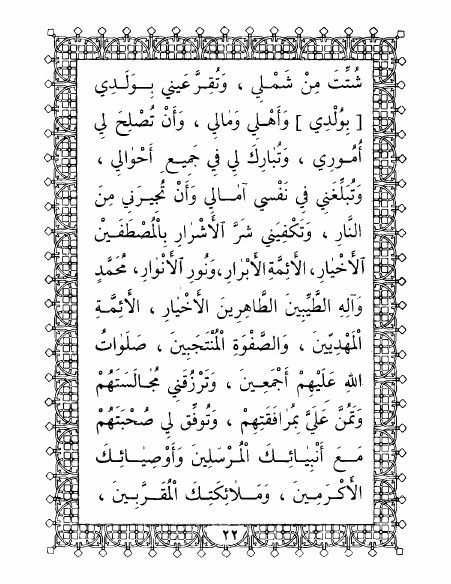 شُتِّتَ مِنْ شَمْلِي ، وَتُقِرَّ عَيْنِي بِوَلَدِي
[ بِوُلْدِي ] وَأَهْلِي وَمَالِي ، وَأَنْ تُصْلِحَ لِي
أُمُورِي ، وَتُبَارِكَ لِي فِي جَمِيعِ أَحْوَالِي ،
وَتُبَلِّغَنِي فِي نَفْسِي آمَالِي وَأَنْ تُجِيرَنِي مِنَ
النَّارِ ، وَتَكْفِيَنِي شَرَّ ٱلْأَشْرَارِ بِالْمُصْطَفَيْنَ
ٱلْأَخْيَارِ، الْأَئِمَّةِ الْأَبْرَارِ، وَنُورِ ٱلْأَنْوَارِ، مُحَمَّدٍ
وَآلِهِ الطَّيِّبِينَ الطَّاهِرِينَ الْأَخْيَارِ ، الْأَئِمَّةِ
الْمَهْدِيِّينَ ، وَالصَّفْوَةِ الْمُنْتَجَبِينَ ، صَلَوَاتُ
اللهِ عَلَيْهِمْ أَجْمَعِينَ ، وَتَرْزُقَنِي مُجَالَسَتَهُمْ
وَتَمُنَّ عَلَيَّ بِمُرَافَقَتِهِمْ ، وَتُوَفِّقَ لِي صُحْبَتَهُمْ
مَعَ أَنْبِيَائِكَ الْمُرْسَلِينَ وَأَوْصِيَائِكَ
الْأَكْرَمِينَ ، وَمَلَائِكَتِكَ الْمُقَرَّبِينَ ،
٢٢